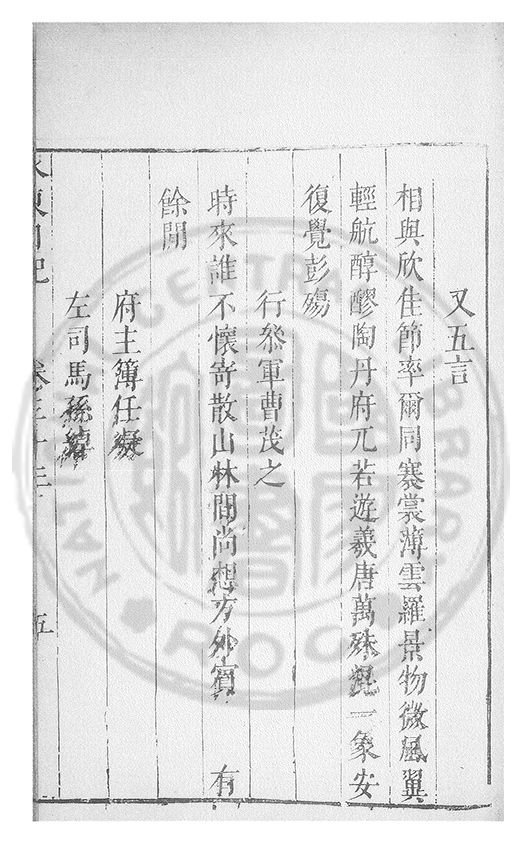 又五言
相與欣佳節率爾同褰裳薄雲羅景物微風翼
輕航醇醪陶丹府兀若遊羲唐萬殊混一象安
復覺彭殤
行叅軍曹茂之
時來誰不懷寄散山林間尚想方外賓 有
餘閒
府主簿任凝
左司馬孫
東日記 卷三十三 五
NATIONAL CENTRAL LIBRARY